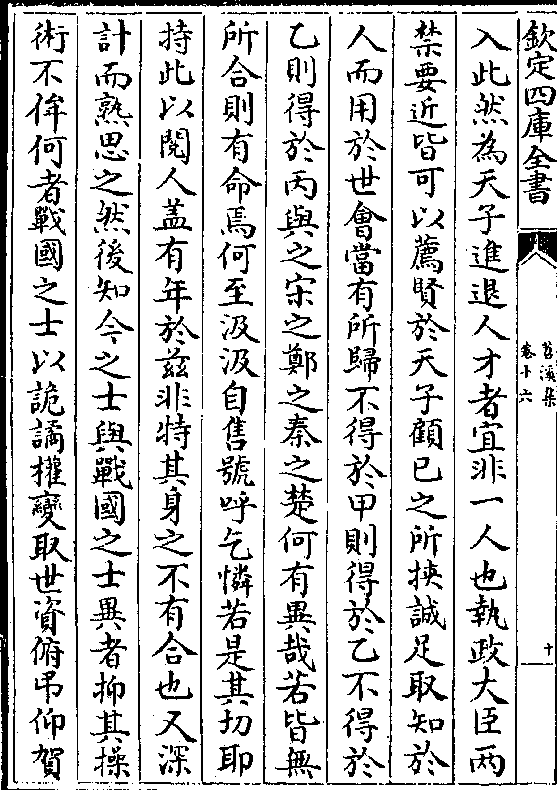 欽定四庫全書
苕溪集
卷十六
十
入此然為天子進退人才者宜非一人也執政大臣两
禁要近皆可以薦賢於天子顧已之所挾誠足取知於
人而用於世會當有所歸不得於甲則得於乙不得於
乙則得於丙與之宋之鄭之秦之楚何有異哉若皆無
所合則有命焉何至汲汲自售號呼乞憐若是其切耶
持此以閱人盖有年於兹非特其身之不有合也又深
計而熟思之然後知今之士與戰國之士異者抑其操
術不侔何者戰國之士以詭譎權變取世資俯弔仰賀